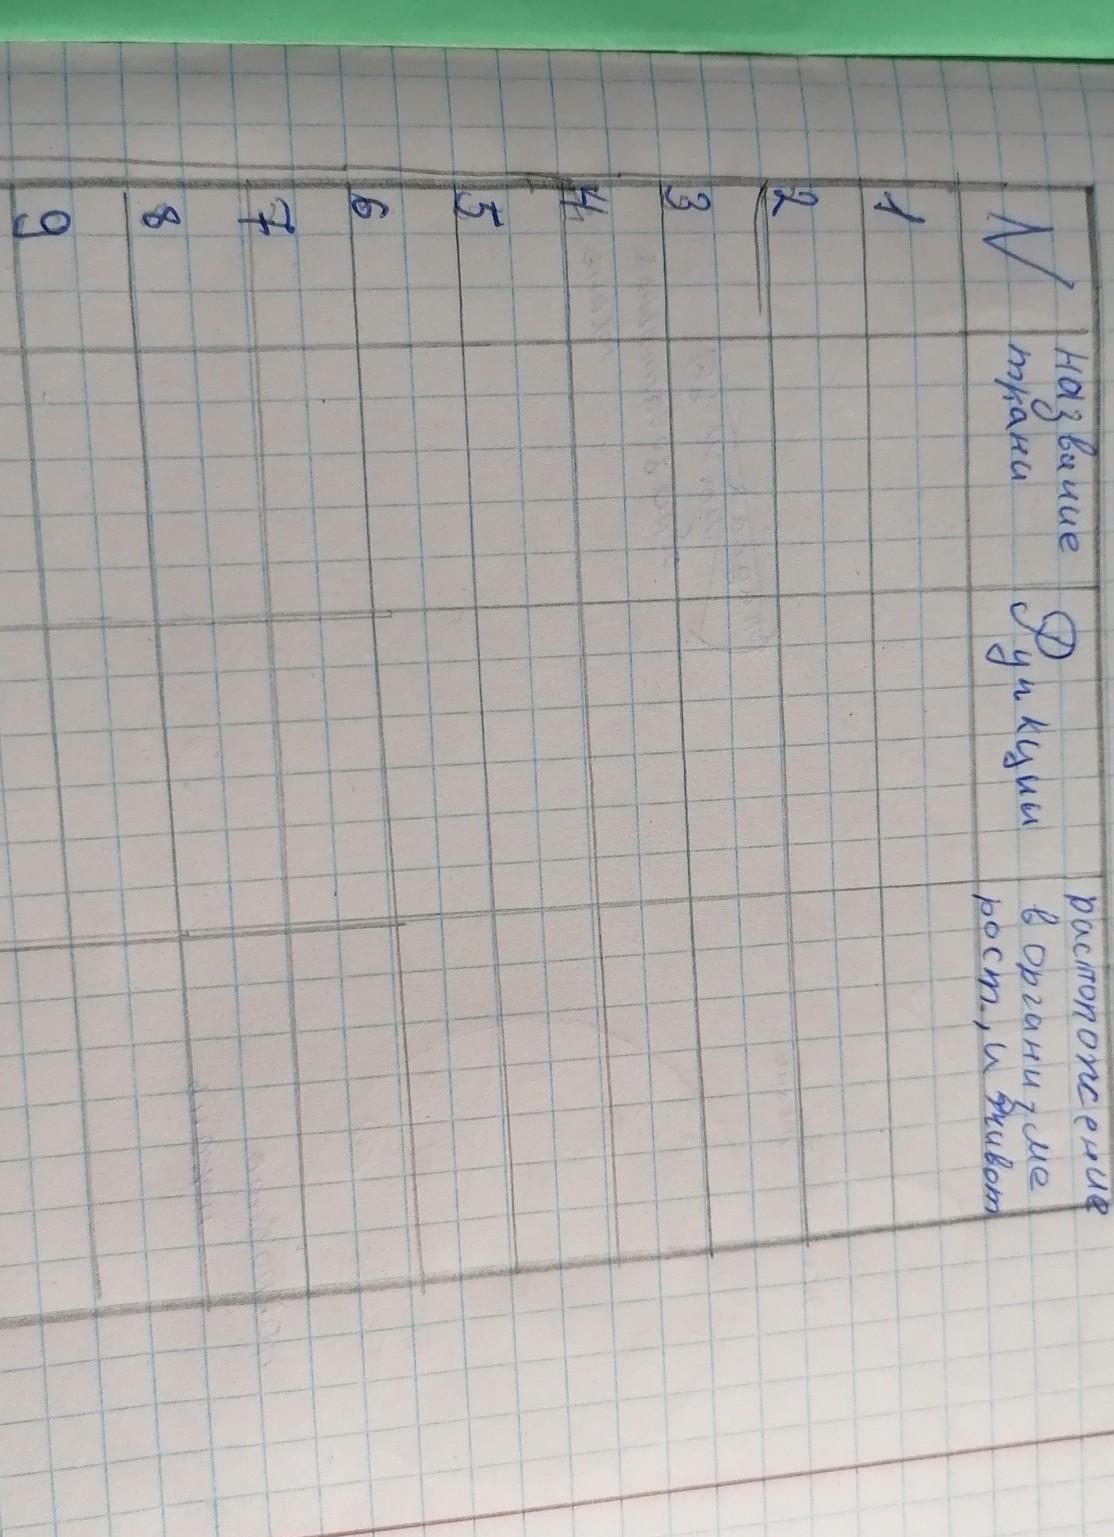 N
название
ткани
Функции
расположение
в организме
раст., и живот
1
2
3
4
5
6
7
8
9